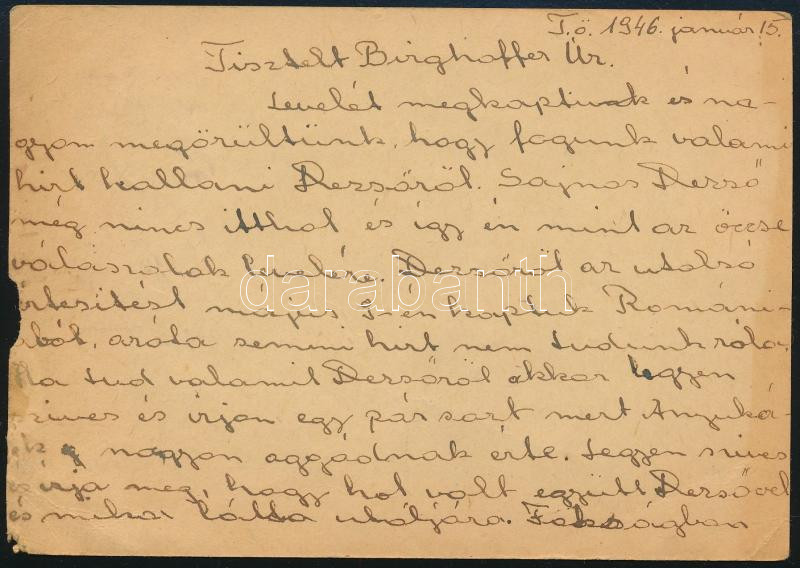 T.ö. 1946. január 15.
Tisztelt Birghoffer Úr.
Levelét megkaptuk és na-
gyon megörültünk, hogy fogunk valami
hirt hallani Dezsőről. Sajnos Dezső
még nincs itthol és így én mint az öccse
válaszolok levelére. Dezsőről az utolsó
értesitést május 9-én kaptuk Románi-
ából, azóta semmi hirt nem tudunk róla.
Ha tud valamit Dezsőről akkor legyen
szives és irjon egy pár sort mert Anyuká-
ék nagyon aggódnak érte. Legyen szives
és irja meg, hogy hol volt együtt Dezsővel
és mikor látta utoljára. Fogságban
darabanth